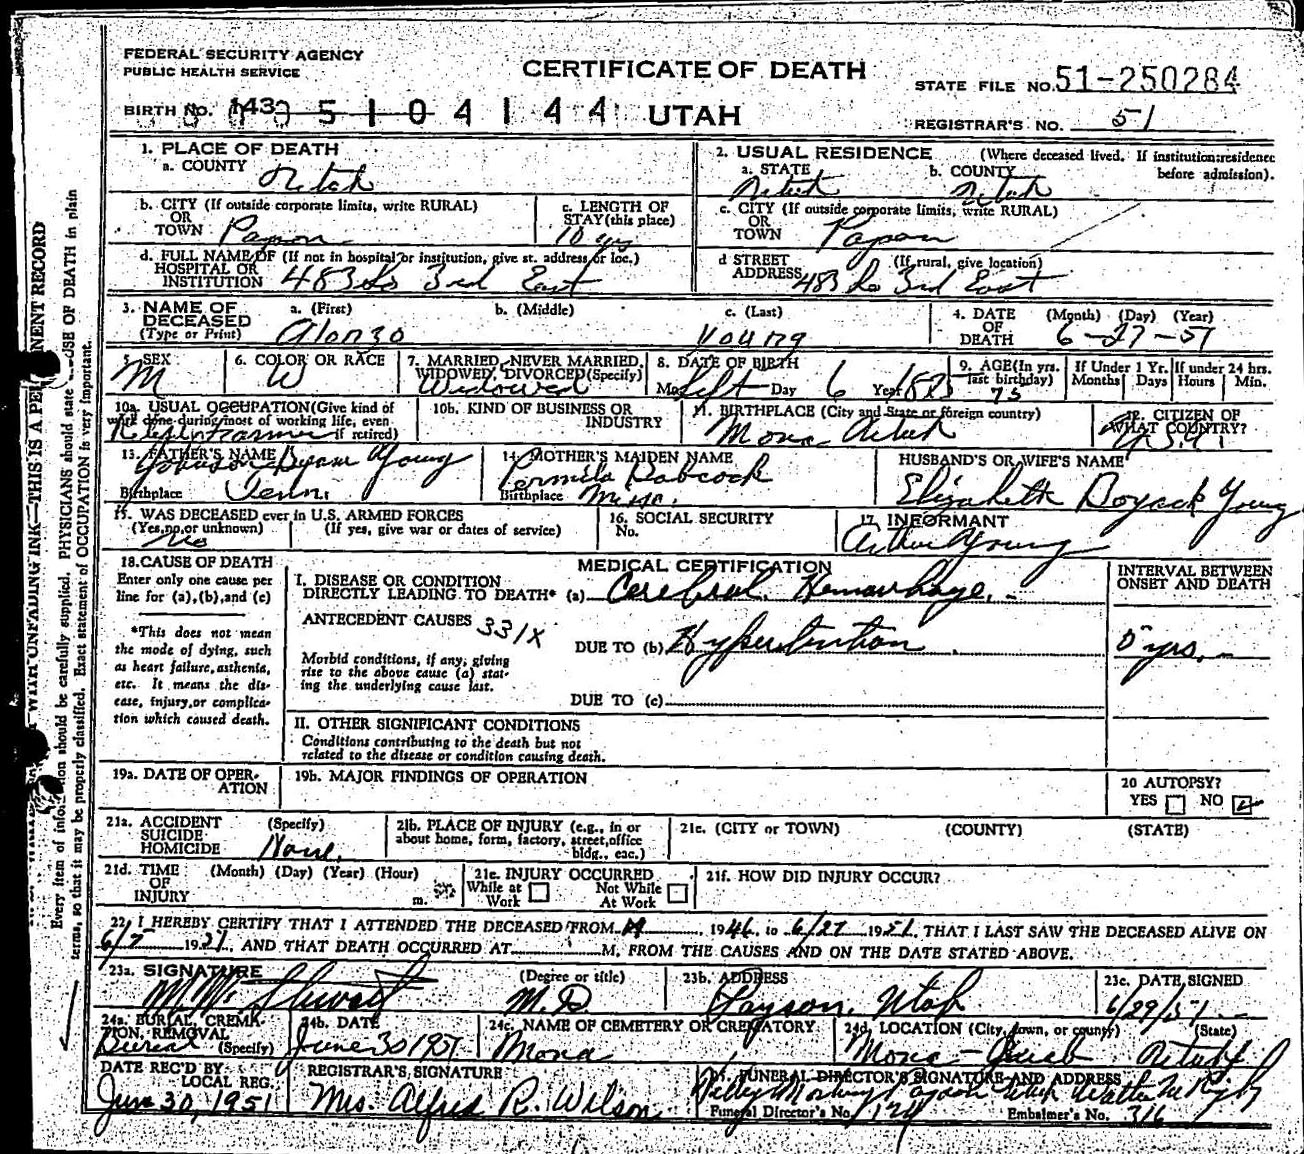 FEDERAL SECURITY AGENCY
PUBLIC HEALTH SERVICE
CERTIFICATE OF DEATH
STATE FILE NO. 51-250284
BIRTH NO. 143 5104144 UTAH
REGISTRAR'S NO. 51
1. PLACE OF DEATH
a. COUNTY Utah
2. USUAL RESIDENCE (Where deceased lived. If institution:residence before admission).
a. STATE Utah b. COUNTY Utah
b. CITY (If outside corporate limits, write RURAL) OR TOWN Payson
c. LENGTH OF STAY (this place) 10 yrs
c. CITY (If outside corporate limits, write RURAL) OR TOWN Payson
d. FULL NAME OF (If not in hospital or institution, give st. address or loc.) HOSPITAL OR INSTITUTION 483 So 3rd East
d STREET ADDRESS (If rural, give location) 483 So 3rd East
3. NAME OF DECEASED (Type or Print) a. (First) Alonzo b. (Middle) c. (Last) Young
4. DATE OF DEATH (Month) (Day) (Year) 6-27-51
5. SEX M
6. COLOR OR RACE W
7. MARRIED, NEVER MARRIED, WIDOWED, DIVORCED (Specify) Widowed
8. DATE OF BIRTH Mo. Sept Day 6 Year 1875
9. AGE (In yrs. last birthday) 75
If Under 1 Yr. Months Days
If under 24 hrs. Hours Min.
10a. USUAL OCCUPATION (Give kind of work done during most of working life, even if retired) Farmer
10b. KIND OF BUSINESS OR INDUSTRY
11. BIRTHPLACE (City and State or foreign country) Mona Utah
12. CITIZEN OF WHAT COUNTRY? U.S.A.
13. FATHER'S NAME Young
Birthplace Tenn.
14. MOTHER'S MAIDEN NAME Permila Babcock
Birthplace Miss.
HUSBAND'S OR WIFE'S NAME
Elizabeth Boyack Young
15. WAS DECEASED ever in U.S. ARMED FORCES
(Yes, no, or unknown) (If yes, give war or dates of service)
No
16. SOCIAL SECURITY No.
17. INFORMANT
Arthur Young
18. CAUSE OF DEATH
Enter only one cause per line for (a), (b), and (c)
*This does not mean the mode of dying, such as heart failure, asthenia, etc. It means the disease, injury, or complication which caused death.
MEDICAL CERTIFICATION
INTERVAL BETWEEN ONSET AND DEATH
I. DISEASE OR CONDITION DIRECTLY LEADING TO DEATH* (a) Cerebral Hemorrhage.
ANTECEDENT CAUSES 331X
DUE TO (b) Hypertension 5 yrs.
Morbid conditions, if any, giving rise to the above cause (a) stating the underlying cause last.
DUE TO (c)
II. OTHER SIGNIFICANT CONDITIONS
Conditions contributing to the death but not related to the disease or condition causing death.
19a. DATE OF OPERATION
19b. MAJOR FINDINGS OF OPERATION
20 AUTOPSY?
YES NO
21a. ACCIDENT SUICIDE HOMICIDE (Specify) None.
21b. PLACE OF INJURY (e.g., in or about home, form, factory, street, office bldg., eac.)
21c. (CITY or TOWN) (COUNTY) (STATE)
21d. TIME OF INJURY (Month) (Day) (Year) (Hour) m.
21e. INJURY OCCURRED
While at Work Not While At Work
21f. HOW DID INJURY OCCUR?
22. I HEREBY CERTIFY THAT I ATTENDED THE DECEASED FROM 1946 to 6/27 1951, THAT I LAST SAW THE DECEASED ALIVE ON
1951, AND THAT DEATH OCCURRED AT M, FROM THE CAUSES AND ON THE DATE STATED ABOVE.
23a. SIGNATURE (Degree or title) M.D.
Stewart
23b. ADDRESS
Payson, Utah
23c. DATE SIGNED
6/29/51
24a. BURIAL, CREMATION, REMOVAL (Specify) Burial
24b. DATE
June 30 1951
24c. NAME OF CEMETERY OR CREMATORY
Mona
24d. LOCATION (City, town, or county) (State)
Mona - Juab Utah
DATE REC'D BY LOCAL REG.
June 30, 1951
REGISTRAR'S SIGNATURE
Mrs. Alfred R. Wilson
25. FUNERAL DIRECTOR'S SIGNATURE AND ADDRESS
Funeral Director's No. 174 Embalmer's No. 316
WITH UNFADING INK—THIS IS A PERMANENT RECORD
Every item of information should be carefully supplied. PHYSICIANS should state CAUSE OF DEATH in plain
terms, so that it may be properly classified. Exact statement of OCCUPATION is very important.